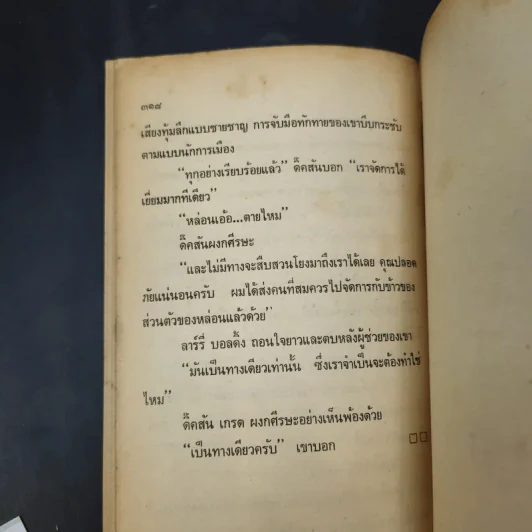 ๓๑๘
เสียงทุ้มลึกแบบชายชาญ การจับมือทักทายของเขาบีบกระชับ
ตามแบบนักการเมือง
“ทุกอย่างเรียบร้อยแล้ว” ดิ๊คสันบอก “เราจัดการได้
เยี่ยมมากทีเดียว”
“หล่อนเอ้อ...ตายไหม”
ดิ๊คสันผงกศีรษะ
“และไม่มีทางจะสืบสวนโยงมาถึงเราได้เลย คุณปลอด
ภัยแน่นอนครับ ผมได้ส่งคนที่สมควรไปจัดการกับข้าวของ
ส่วนตัวของหล่อนแล้วด้วย”
ลาร์รี่ บอลดิ้ง ถอนใจยาวและตบหลังผู้ช่วยของเขา
“มันเป็นทางเดียวเท่านั้น ซึ่งเราจำเป็นจะต้องทำใช่
ไหม”
ดิ๊คสัน เกรด ผงกศีรษะอย่างเห็นพ้องด้วย
“เป็นทางเดียวครับ” เขาบอก □□